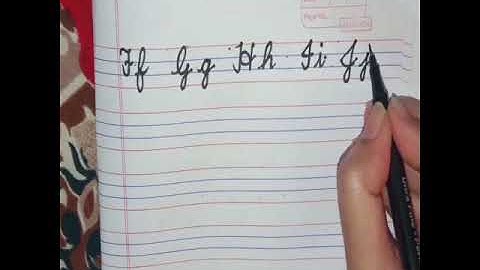 Ff Gg Hh Ii Jj